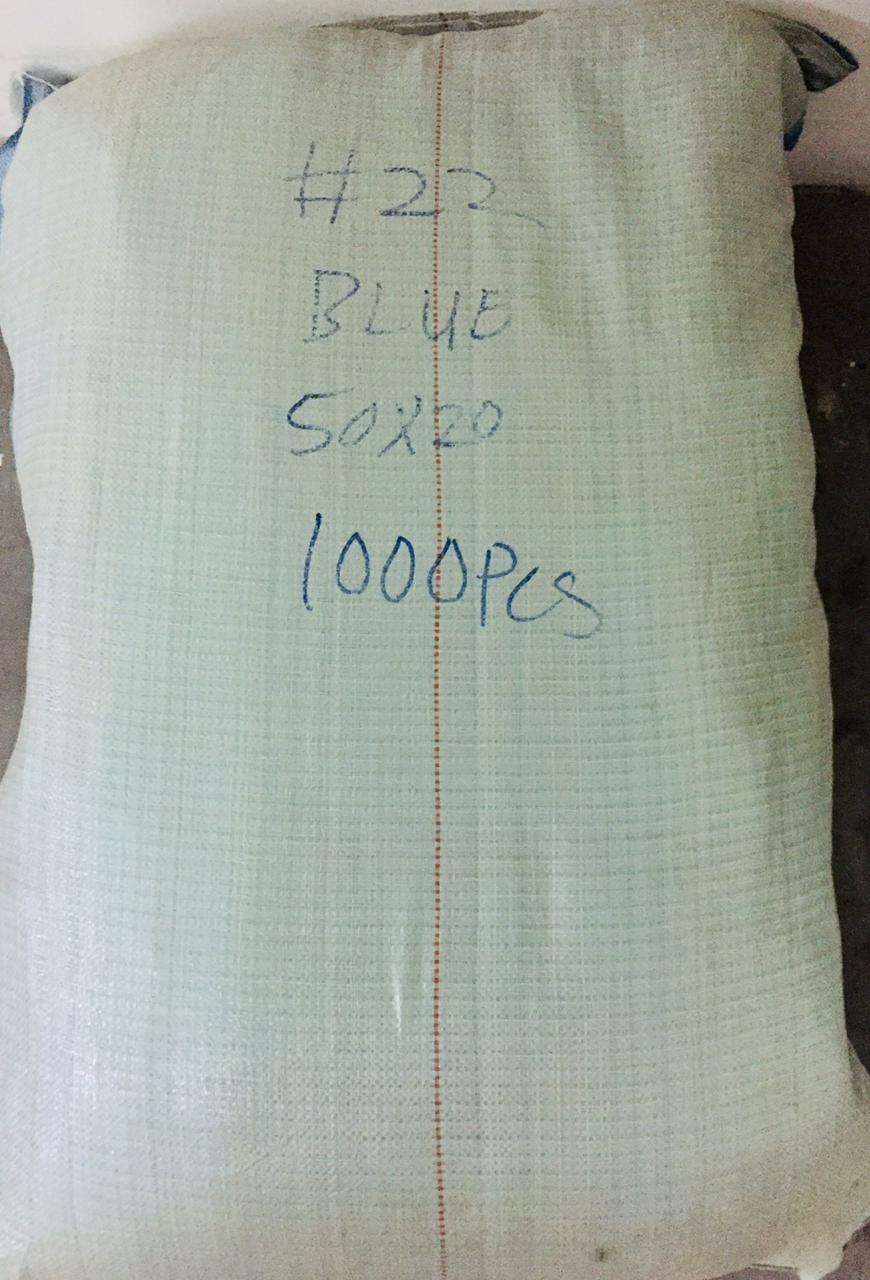 #22
BLUE
50X20
1000PCS